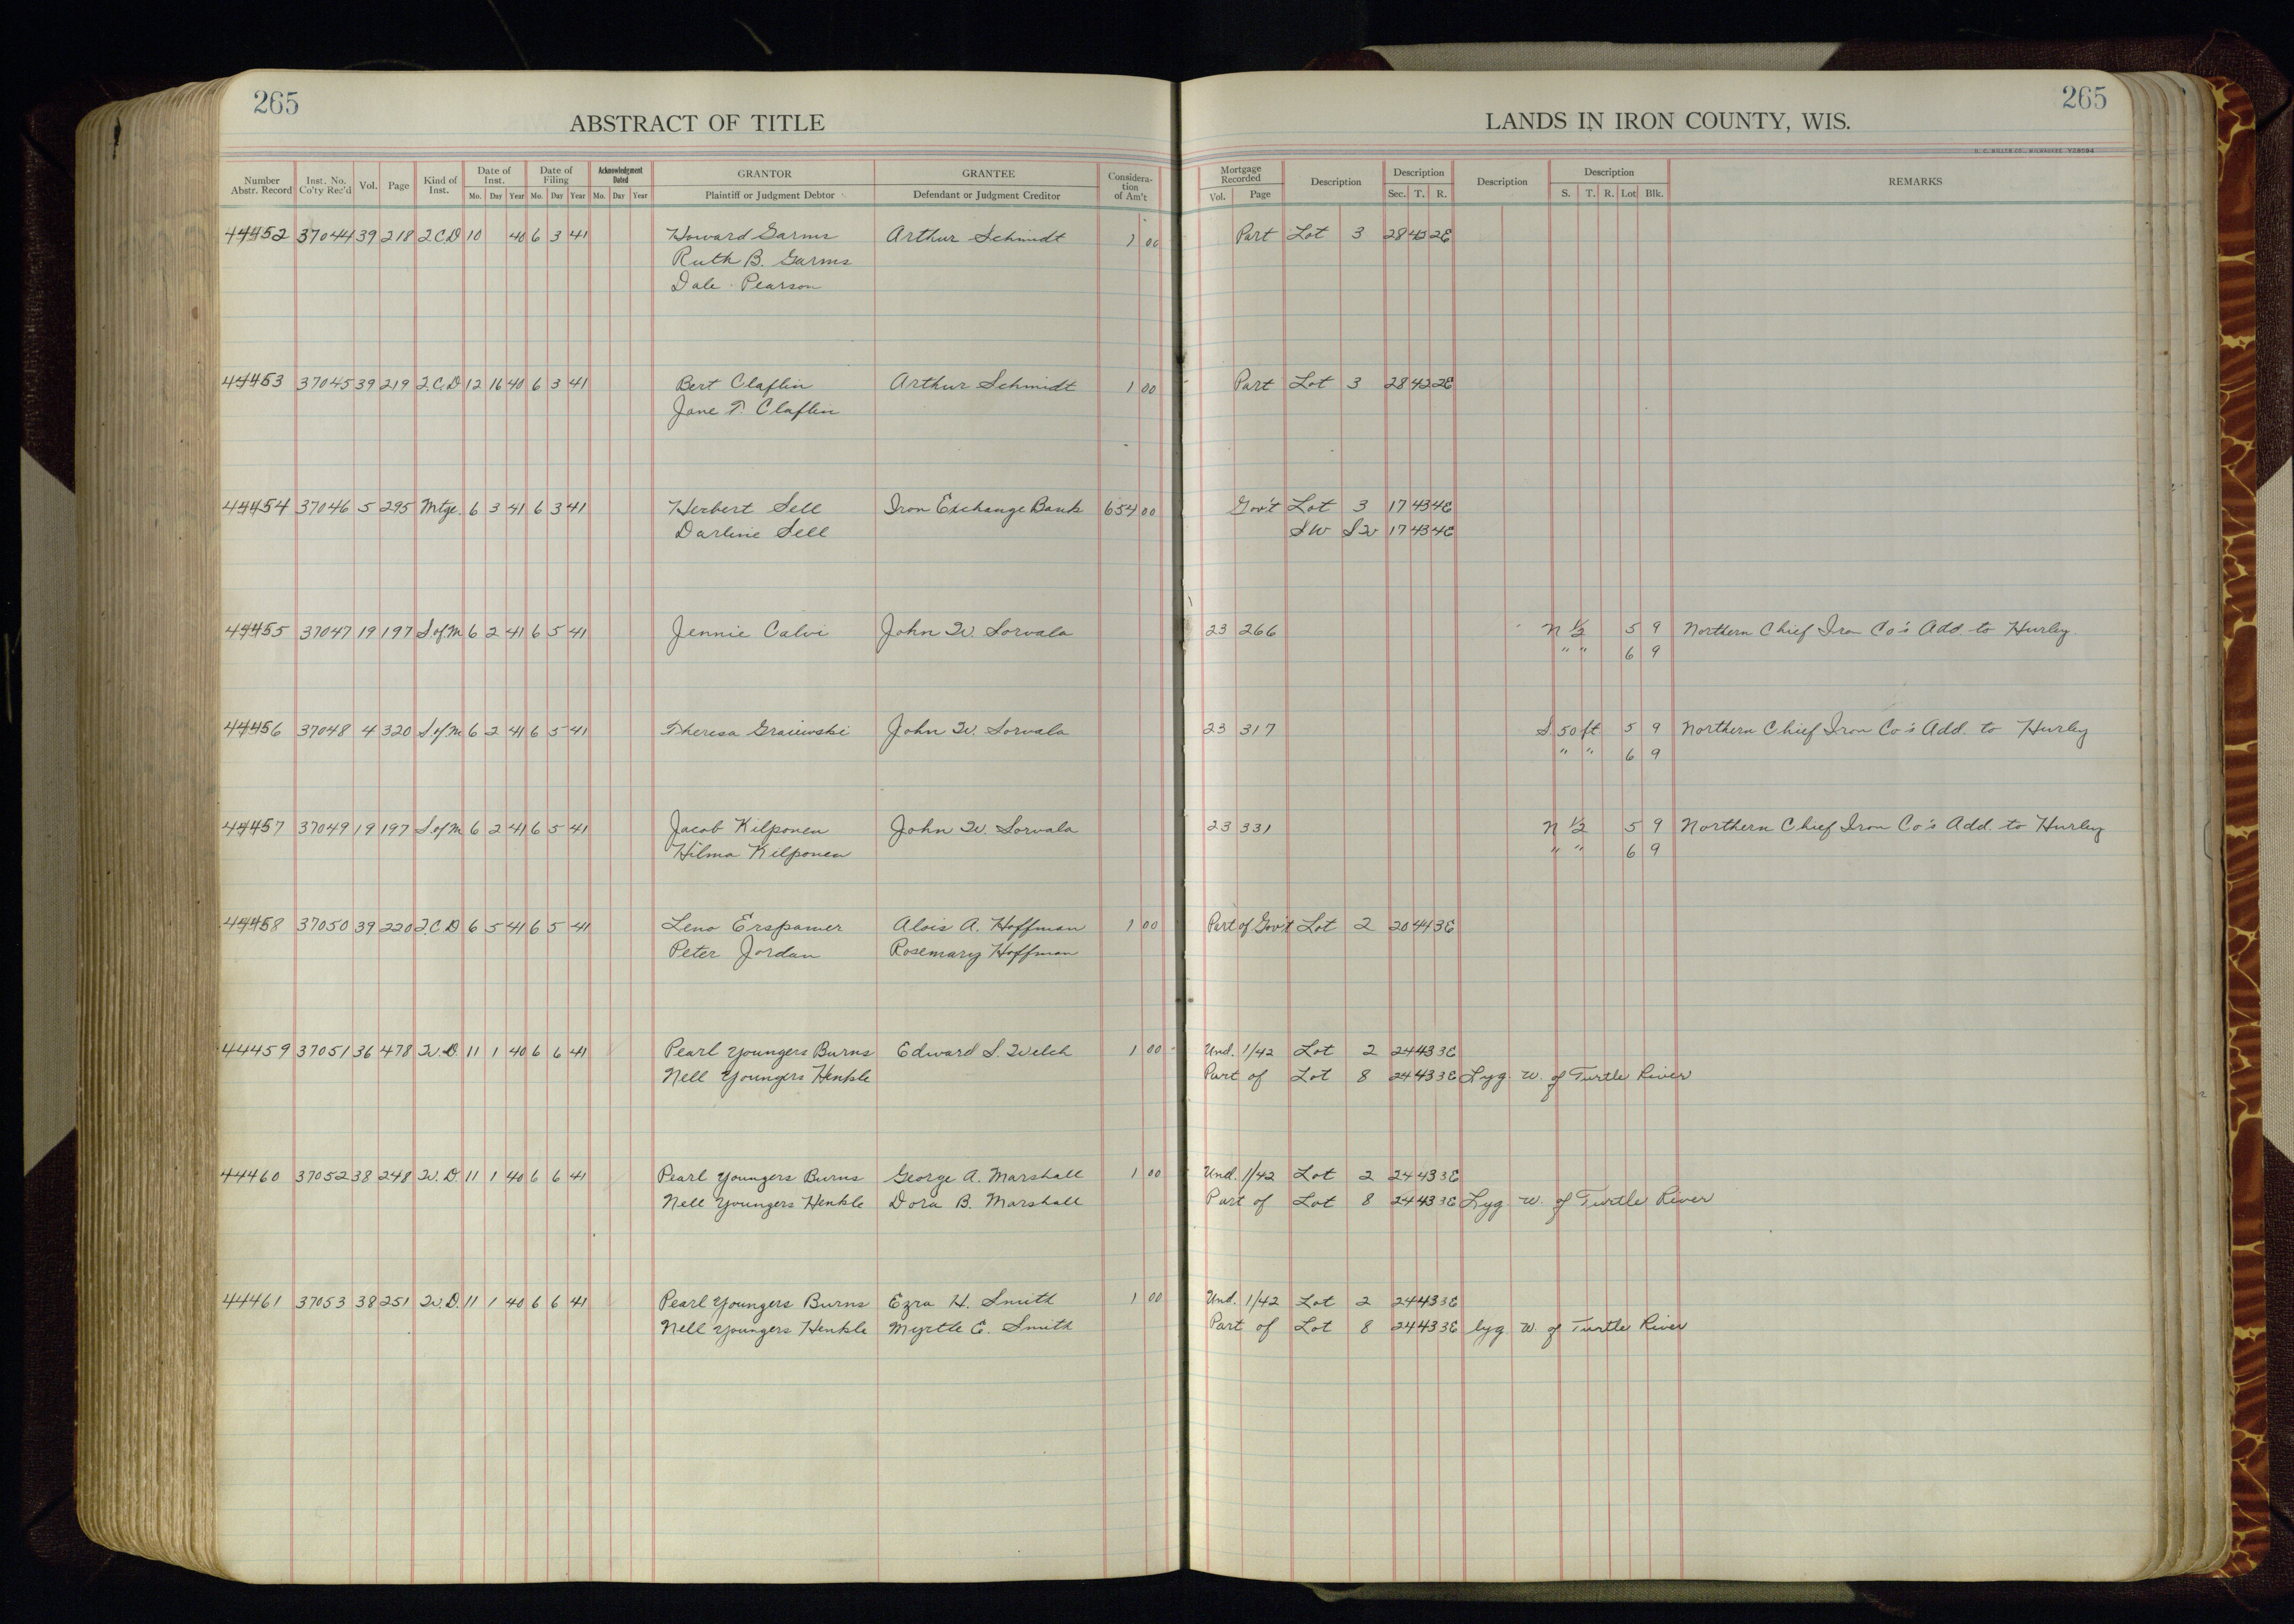 265
265
ABSTRACT OF TITLE
LANDS IN IRON COUNTY, WIS.
H. C. MILLER CO., MILWAUKEE
Number Abstr. Record Inst. No. Co'ty Rec'd Vol. Page Kind of Inst. Date of Inst. Mo. Day Year Date of Filing Mo. Day Year Acknowledgment Dated Mo. Day Year GRANTOR Plaintiff or Judgment Debtor GRANTEE Defendant or Judgment Creditor Considera-tion of Am't Mortgage Recorded Vol. Page Description Description Sec. T. R. Description Description S. T. R. Lot Blk. REMARKS
44452 37044 39 218 Q.C.D 10 40 6 3 41 Howard Garms Arthur Schmidt 1 00 Part Lot 3 28 42 2E
Ruth B. Garms
Dale Pearson
44453 37045 39 219 Q.C.D 12 16 40 6 3 41 Bert Claflin Arthur Schmidt 1 00 Part Lot 3 28 42 2E
Jane T. Claflin
44454 37046 5 295 Mtge. 6 3 41 6 3 41 Herbert Sell Iron Exchange Bank 654 00 Gov't Lot 3 17 43 4E
Darline Sell SW SW 17 43 4E
44455 37047 19 197 S of M 6 2 41 6 5 41 Jennie Calvi John W. Sorvala 23 266 N 1/2 5 9 Northern Chief Iron Co's Add. to Hurley.
" " 6 9
44456 37048 4 320 S of M 6 2 41 6 5 41 Theresa John W. Sorvala 23 317 S. 50 ft 5 9 Northern Chief Iron Co's Add. to Hurley
" " 6 9
44457 37049 19 197 S of M 6 2 41 6 5 41 Jacob Kilponen John W. Sorvala 23 331 N 1/2 5 9 Northern Chief Iron Co's Add. to Hurley
Hilma Kilponen " " 6 9
44458 37050 39 220 Q.C.D 6 5 41 6 5 41 Leno Erspamer Alois A. Hoffman 1 00 Part of Gov't Lot 2 20 44 3E
Peter Jordan Rosemary Hoffman
44459 37051 36 478 W.D. 11 1 40 6 6 41 Pearl Youngers Burns Edward S. Welch 1 00 Und. 1/42 Lot 2 24 43 3E
Nell Youngers Henkle Part of Lot 8 24 43 3E Lyg. W. of Turtle River
44460 37052 38 248 W.D. 11 1 40 6 6 41 Pearl Youngers Burns George A. Marshall 1 00 Und. 1/42 Lot 2 24 43 3E
Nell Youngers Henkle Dora B. Marshall Part of Lot 8 24 43 3E Lyg. W. of Turtle River
44461 37053 38 251 W.D. 11 1 40 6 6 41 Pearl Youngers Burns Ezra H. Smith 1 00 Und. 1/42 Lot 2 24 43 3E
Nell Youngers Henkle Myrtle E. Smith Part of Lot 8 24 43 3E lyg. W. of Turtle River